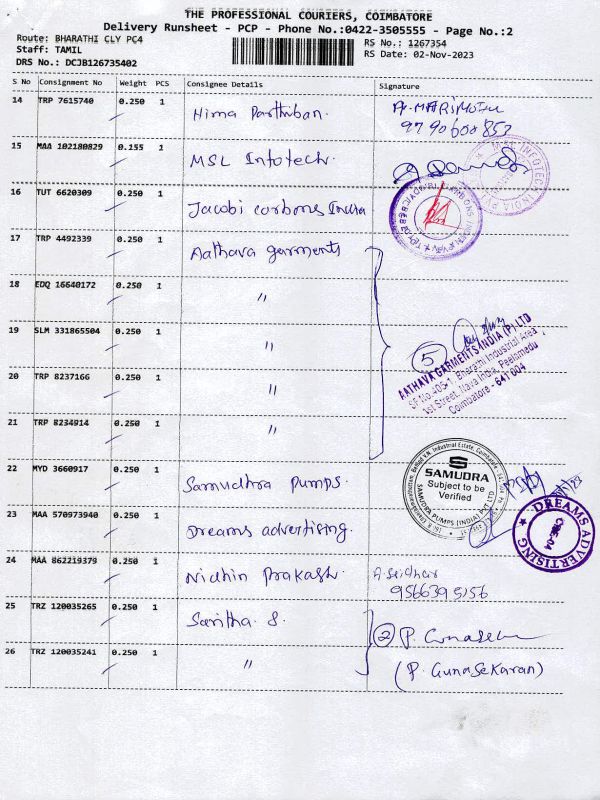 THE PROFESSIONAL COURIERS, COIMBATORE
Delivery Runsheet - PCP - Phone No.:0422-3505555 - Page No.:2
Route: BHARATHI CLY PC4
RS No.: 1267354
Staff: TAMIL
RS Date: 02-Nov-2023
DRS No.: DCJB126735402
S No Consignment No Weight PCS Consignee Details Signature
14 TRP 7615740 0.250 1 Hima Parthiban.
9790600857
15 MAA 102180829 0.155 1 MSL Infotech.
16 TUT 6620309 0.250 1 Jacobi carbons India
17 TRP 4492339 0.250 1 Aathava garments
18 EDQ 16640172 0.250 1 "
19 SLM 331865504 0.250 1 "
5
AATHAVA GARMENTS INDIA (P) LTD
SF No.405-1, Bharathi Industrial Area
1st Street, Nava India, Peelamedu
Coimbatore - 641 004
20 TRP 8237166 0.250 1 "
21 TRP 8234914 0.250 1 "
22 MYD 3660917 0.250 1 Samudhra Pumps.
SAMUDRA
Subject to be
Verified
SAMUDRA PUMPS (INDIA) PVT LTD
23 MAA 570973940 0.250 1 Dreams advertising.
DREAMS ADVERTISING
CMBE-04
24 MAA 862219379 0.250 1 Nidhin Prakash. A Sridhar
9566395156
25 TRZ 120035265 0.250 1 Saritha S.
2 P. Gunasek
26 TRZ 120035241 0.250 1 "
(P. GunaseKaran)